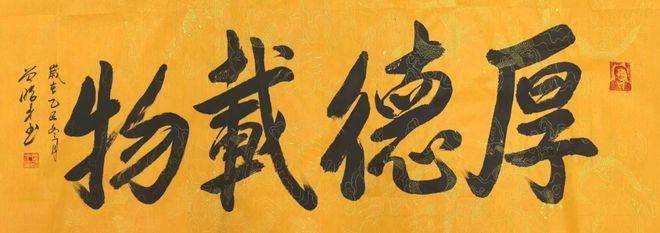 厚德載物
歲在乙丑冬月